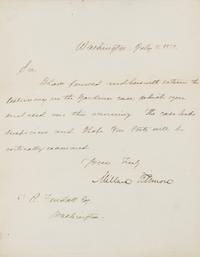 Washington, July
Sir
I have perused and herewith return the
testimony in the Gardiner case, which you
sent me this morning. The case looks
suspicious and I hope the facts will be
critically examined
Yours Truly
Millard Fillmore
P. R. Fendall Esq
Washington.